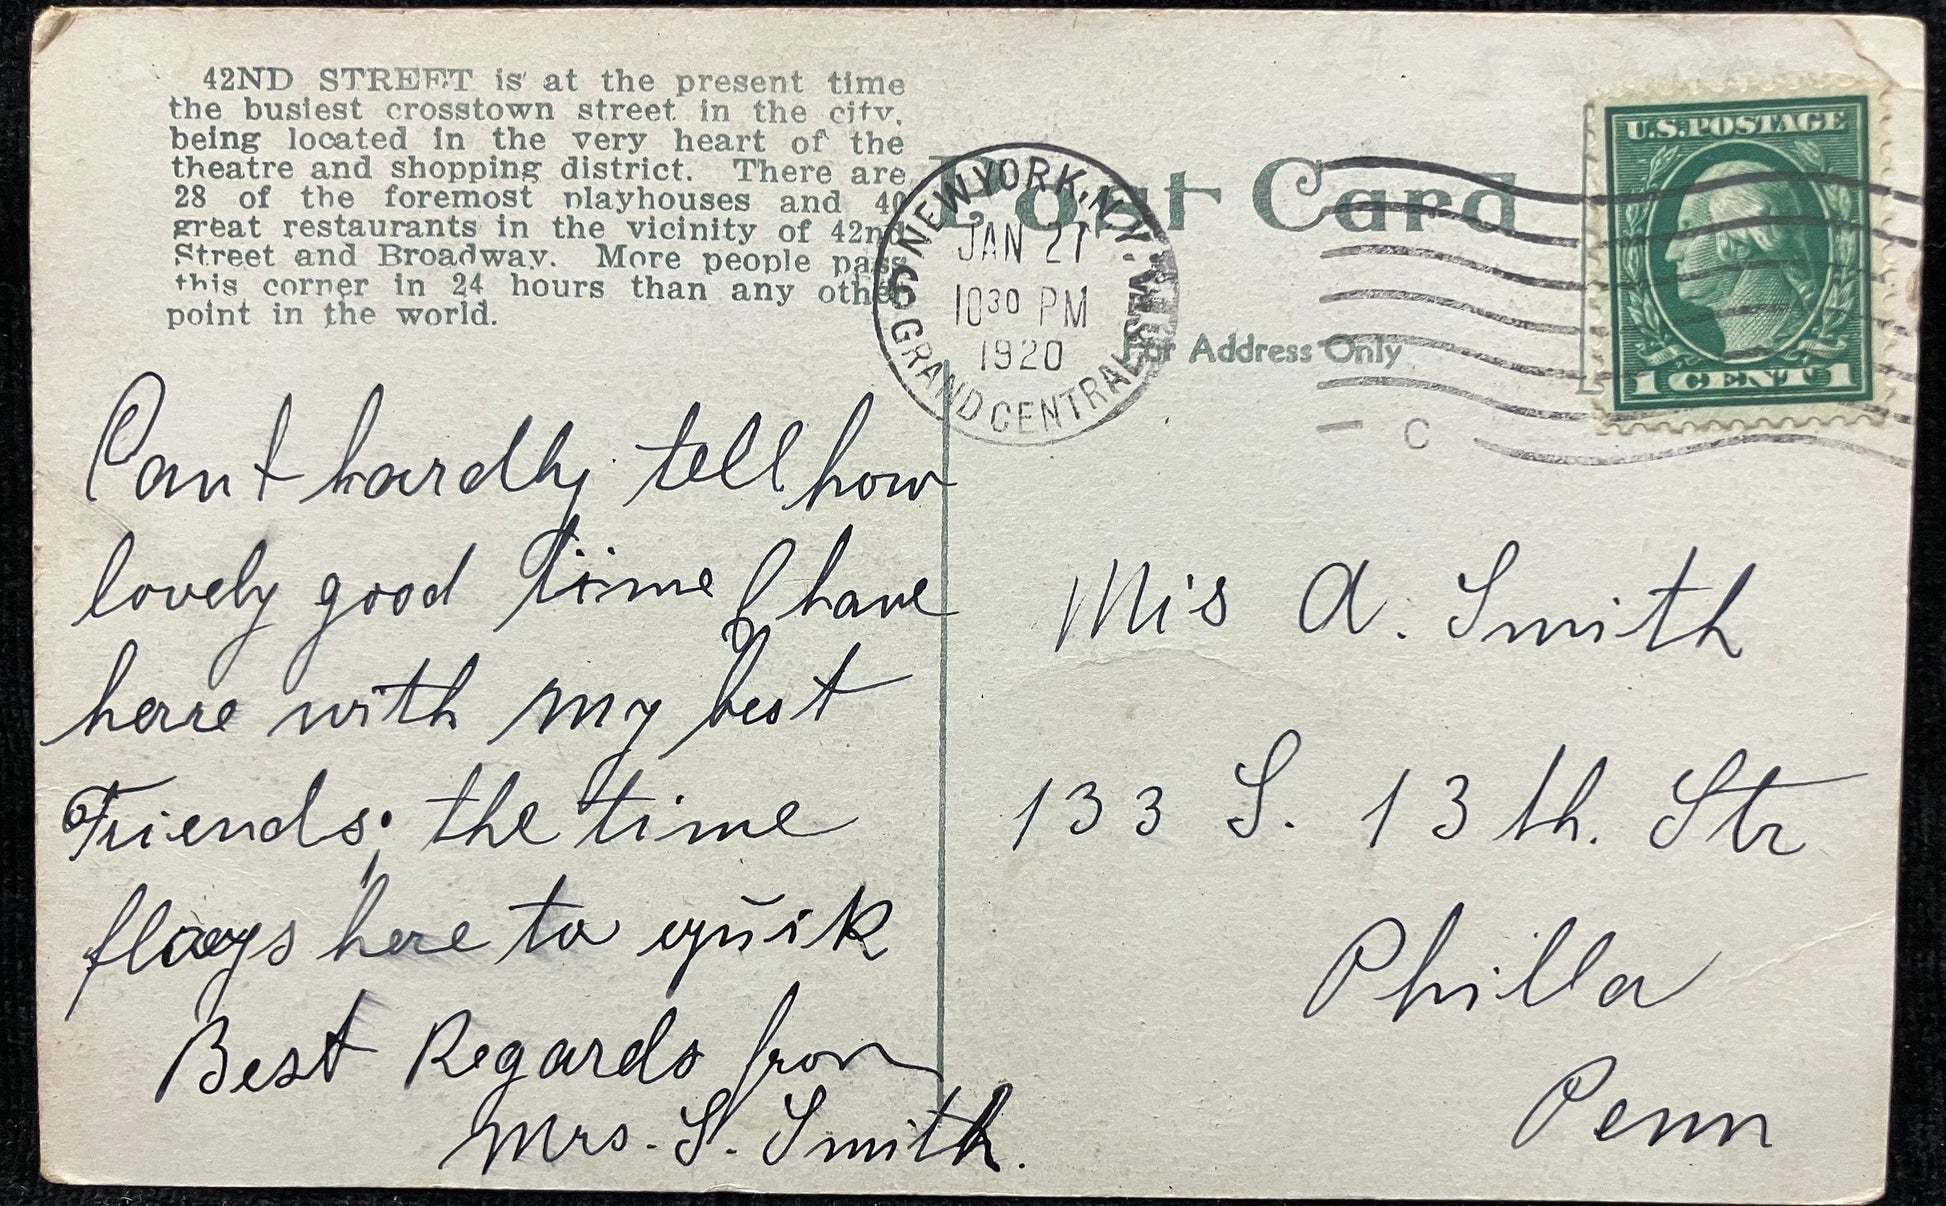 42ND STREET is at the present time
the busiest crosstown street in the city,
being located in the very heart of the
theatre and shopping district. There are
28 of the foremost playhouses and 40
great restaurants in the vicinity of 42nd
Street and Broadway. More people pass
this corner in 24 hours than any other
point in the world.
Post Card
For Address Only
NEW YORK, N.Y.
GRAND CENTRAL STA.
6
JAN 27
10 30 PM
1920
C
U.S. POSTAGE
1 CENT 1
Can't hardly tell how
lovely good time I have
herre with my best
Friends; the time
flays here to quik
Best Regards from
Mrs. S. Smith.
Mis A. Smith
133 S. 13 th. Str
Philla
Penn